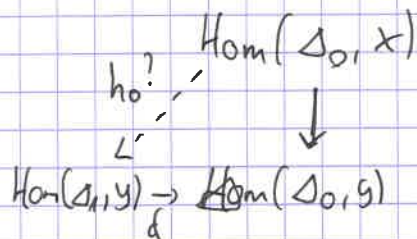 Hom(Δ₀, X)
h₀?
Hom(Δ₁, y) → Hom(Δ₀, y)
d